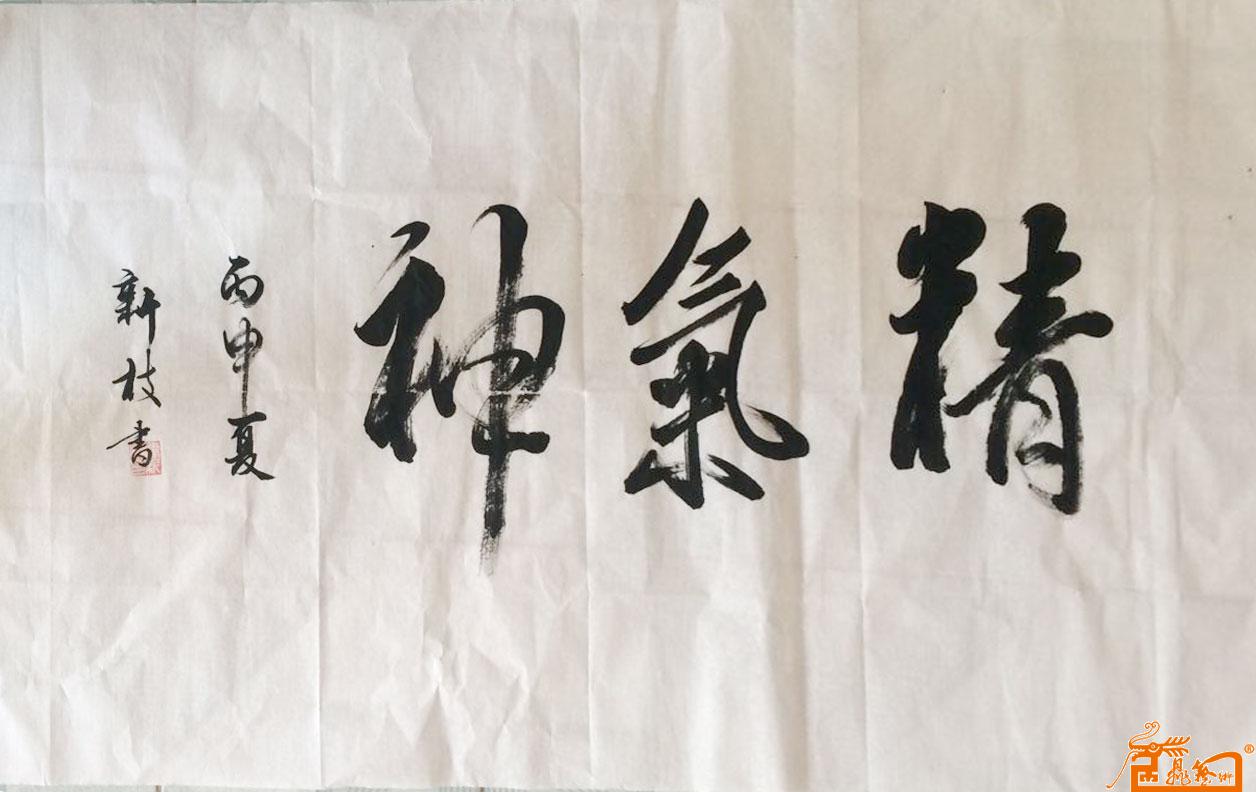 精氣神
丙申夏
新枝書